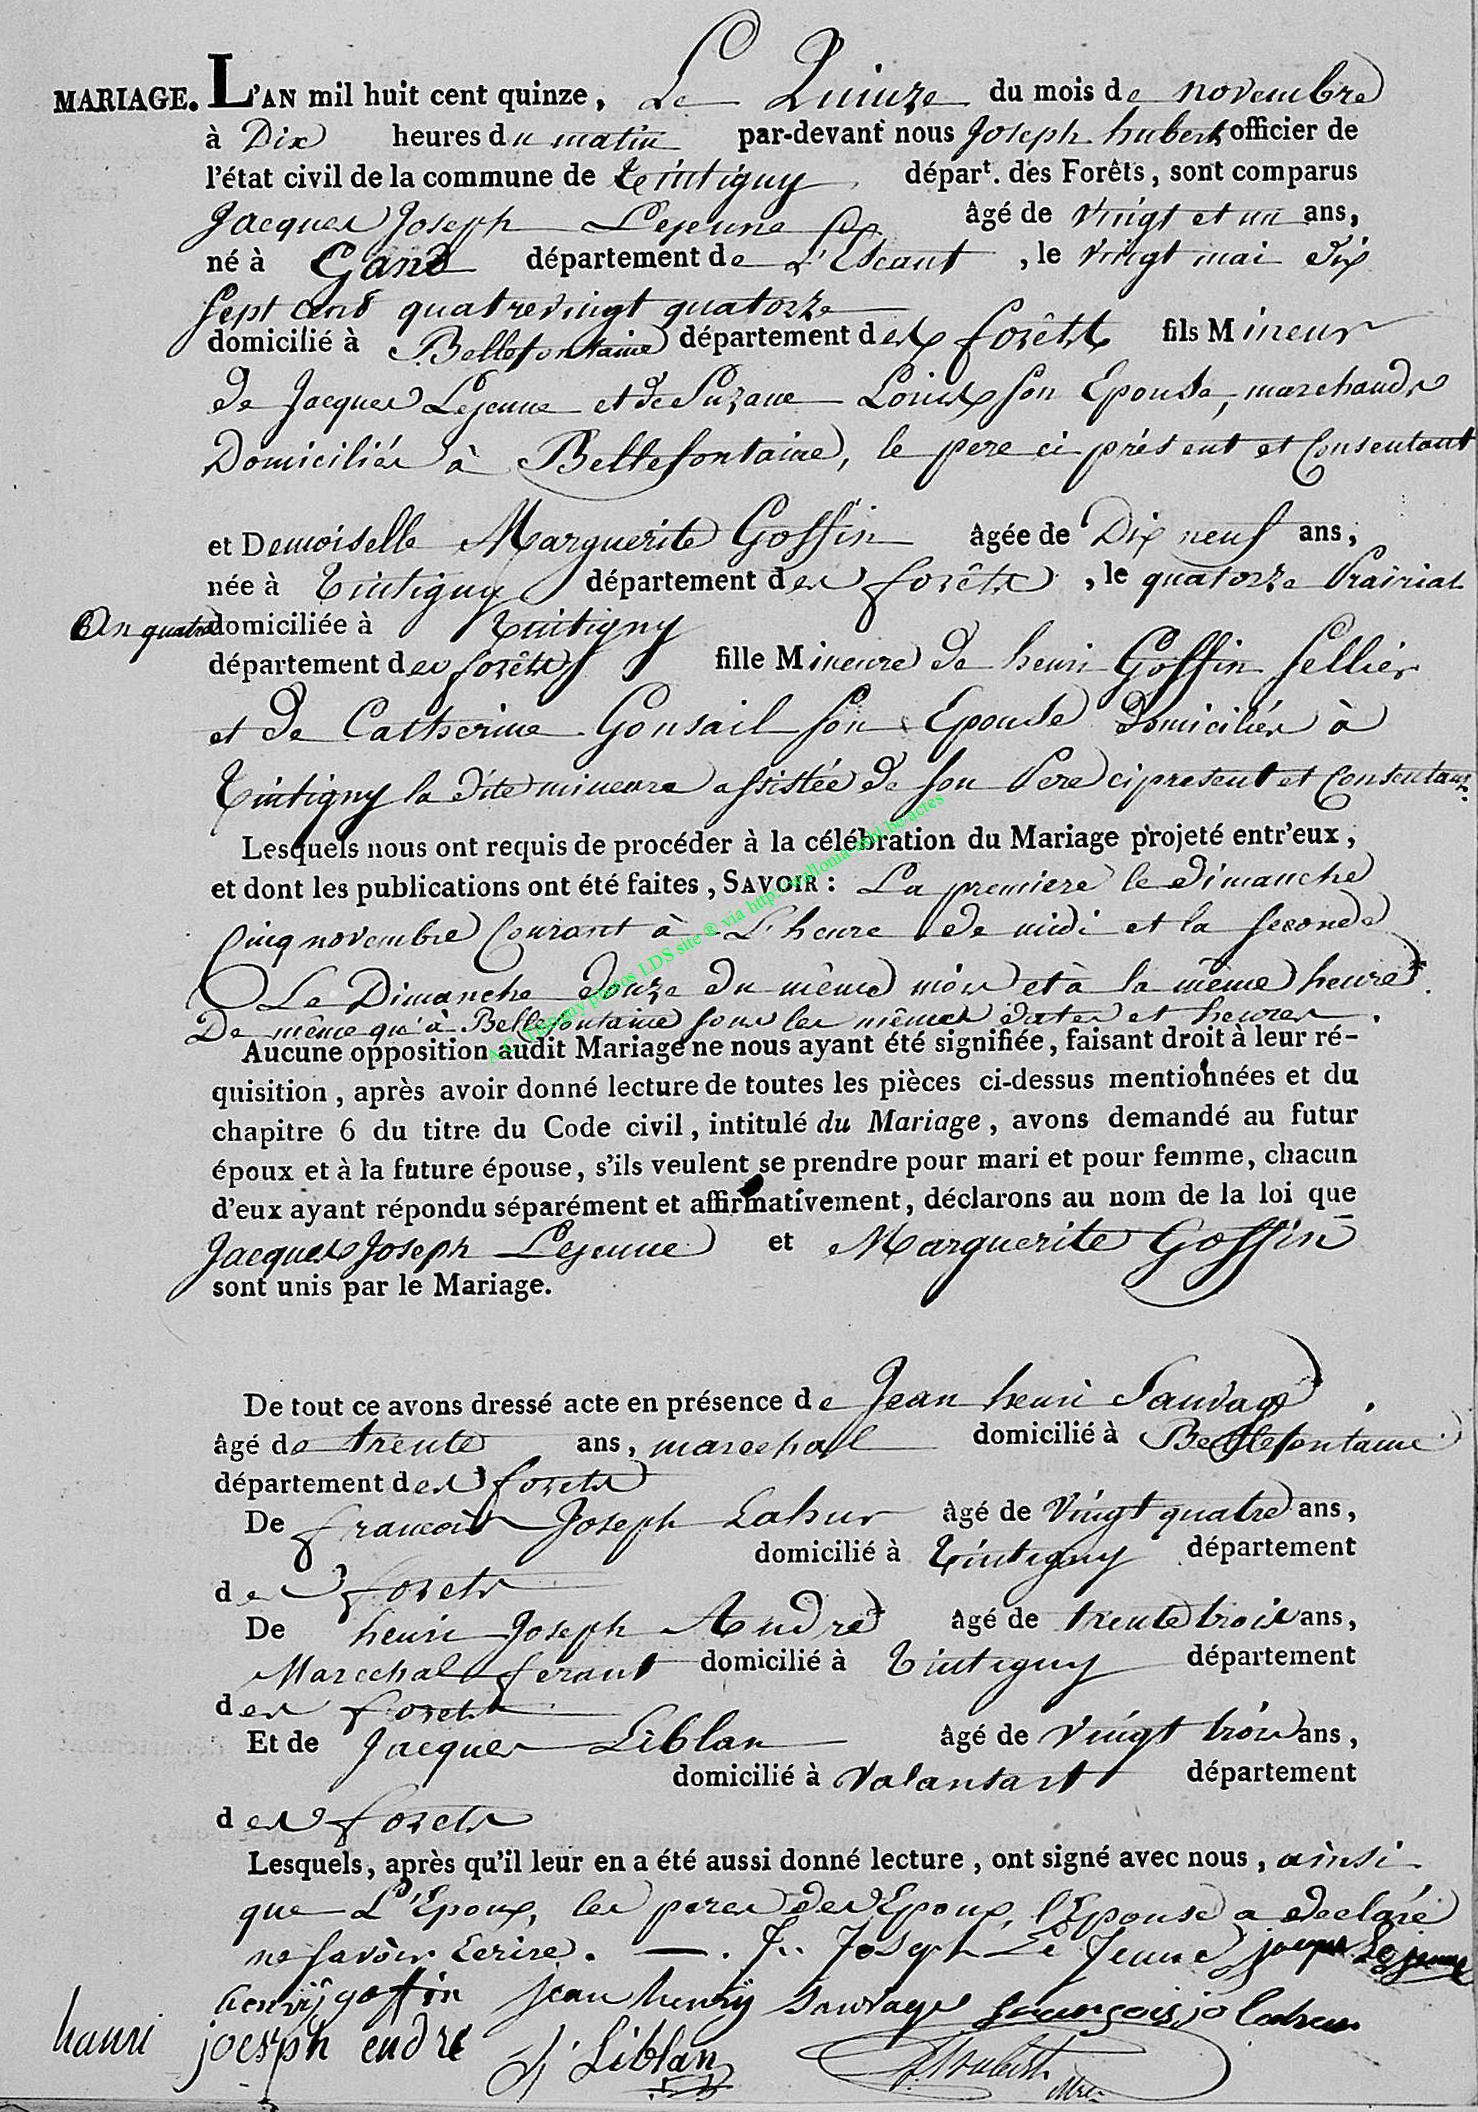 MARIAGE. L'AN mil huit cent quinze, Le Quinze du mois de novembre
à Dix heures du matin par-devant nous Joseph hubert officier de
l'état civil de la commune de Tintigny départ. des Forêts, sont comparus
Jacques Joseph Lejeune âgé de vingt et un ans,
né à Gand département de L'Escaut, le vingt mai dix
sept cent quatrevingt quatorze
domicilié à Bellefontaine département des forêts fils Mineur
de Jacques Lejeune et de Suzane Louis son Epouse, marchands
Domiciliés à Bellefontaine, le pere ci présent et Consentant
et Demoiselle Marguerite Goffin âgée de Dix neuf ans,
née à Tintigny département des forêts, le quatorze Prairial
An quatre domiciliée à Tintigny
département des forêts fille Mineure de henri Goffin Sellier
et de Catherine Gonsail son Epouse Domiciliés à
Tintigny la dite mineure assistée de son Pere ci present et Consentant.
Lesquels nous ont requis de procéder à la célébration du Mariage projeté entr'eux,
et dont les publications ont été faites, SAVOIR: La premiere le dimanche
Cinq novembre Courant à L'heure de midi et la seconde
Le Dimanche douze du même mois et à la même heure.
De même qu'à Bellefontaine sous les mêmes dates et heures.
Aucune opposition audit Mariage ne nous ayant été signifiée, faisant droit à leur ré-
quisition, après avoir donné lecture de toutes les pièces ci-dessus mentionnées et du
chapitre 6 du titre du Code civil, intitulé du Mariage, avons demandé au futur
époux et à la future épouse, s'ils veulent se prendre pour mari et pour femme, chacun
d'eux ayant répondu séparément et affirmativement, déclarons au nom de la loi que
Jacques Joseph Lejeune et Marguerite Goffin
sont unis par le Mariage.
De tout ce avons dressé acte en présence de Jean henri Sauvage
âgé de trente ans, marechal domicilié à Bellefontaine
département des forets
De francois Joseph Lahur âgé de Vingt quatre ans,
domicilié à Tintigny département
des forets
De henri Joseph André âgé de trente trois ans,
Marechal ferant domicilié à Tintigny département
des forets
Et de Jacques Liblan âgé de vingt trois ans,
domicilié à Valansart département
des forets
Lesquels, après qu'il leur en a été aussi donné lecture, ont signé avec nous, ainsi
que L'Epoux, les peres des Epoux, l'Epouse a declaré
ne savoir Ecrire. J.. Joseph Le Jeune jacque Le jeune
henrÿ goffin jean henrÿ Sauvage francois jo lahur
hanri joesph endré J Liblan J Hubert
A.C. Tintigny photos LDS site ® via http://wallonia-asbl.be/actes